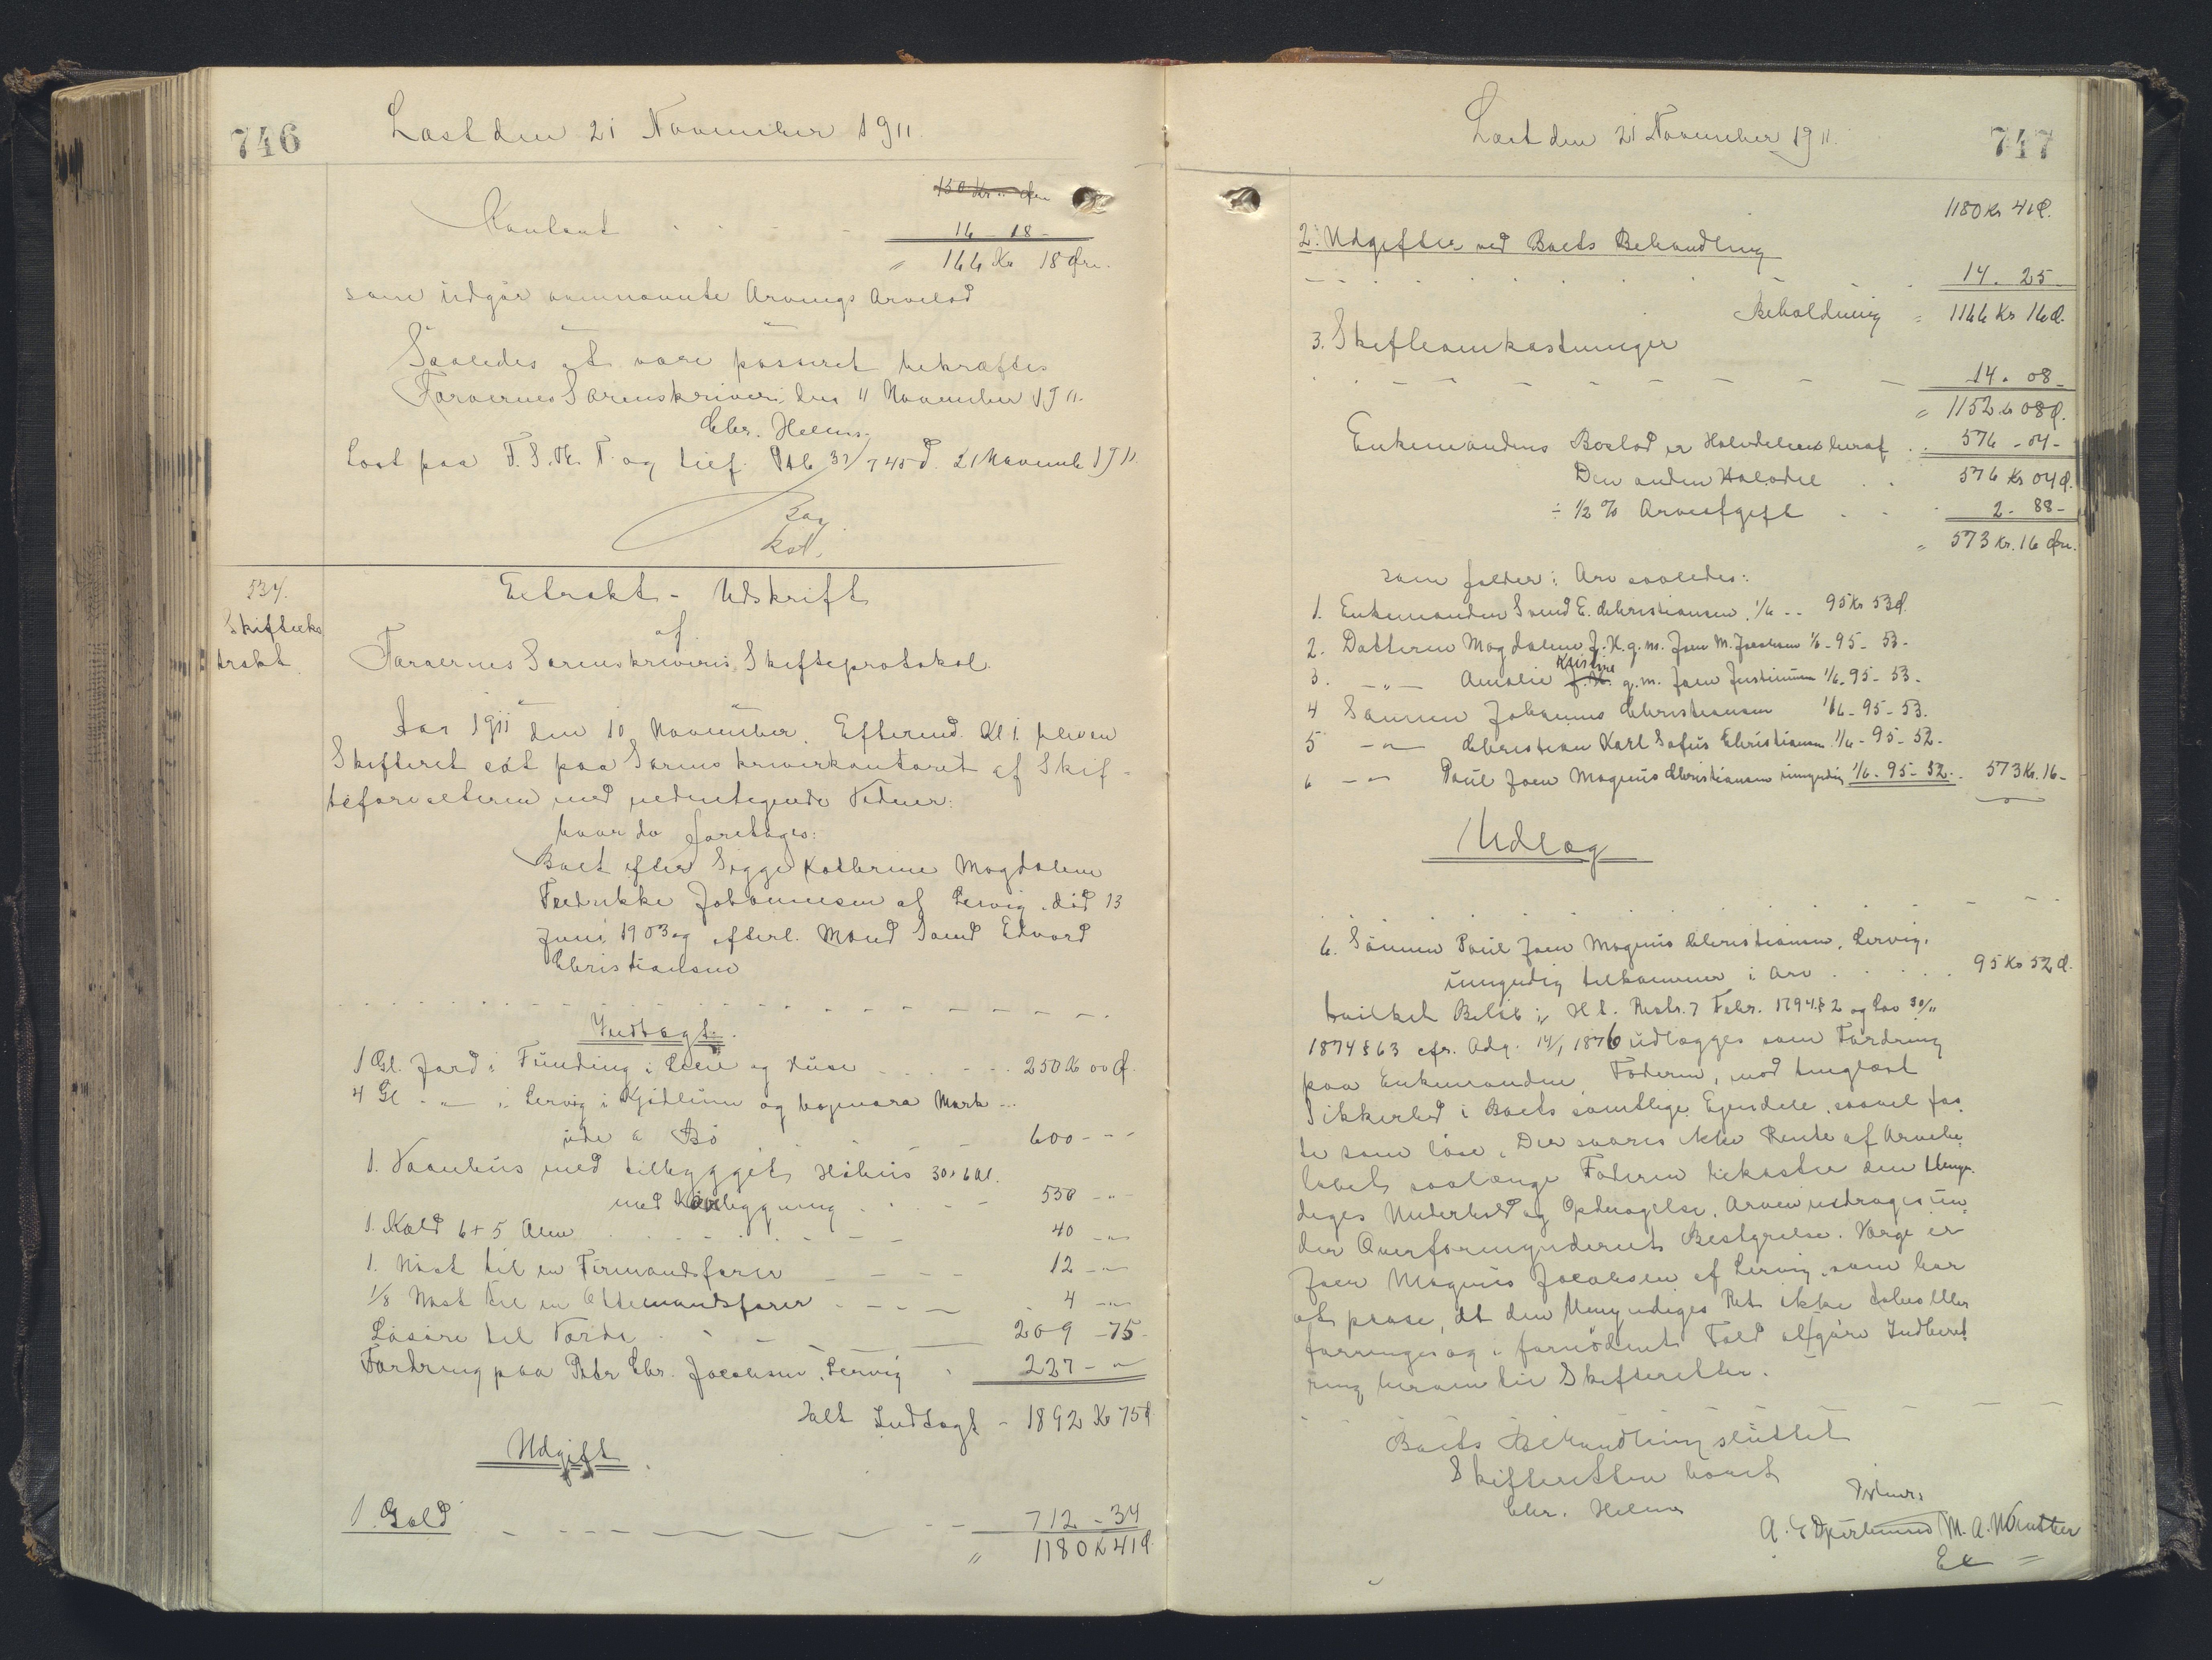 746
Læst den 21 November 1911.
150 Kr " Øre
Kontant . . . . . 16 - 18 -
" 166 Kr 18 Øre.
som udgør ovennævnte Arvings Arvelod
Saaledes at være passeret bekræftes
Færøernes Sorenskriveri, den 11 November 1911.
Chr. Helms.
Læst paa F. S. Th. T. og lief. Ptb 31/745 d. 21 Novemb 1911.
534.
Skifteeks
trakt
Extrakt - Udskrift
af
Færøernes Sorenskriveris Skifteprotokol.
Aar 1911 den 10 November. Eftermd. Kl 1. bleven
Skifteret sat paa Sorenskriverkontoret af Skif-
teforvalteren med nedentegnede Vidner:
hvor da foretages:
Boet efter Sigge Kathrine Magdalene
Fredrikke Johannesen af Lervig, død 13
Juni 1903 og efterl. Mand Svend Edvard
Christiansen
Indtægt.
1 Gl. Jord i Funding i Leie og Huse . . . . . . 250 Kr 00 Ø.
4 Gl - " - i Lervig i Mark -
ude a Bø . . . 600 - -
1. Vaanhus med tilbygget Hohus 30 x 6 Al.
med . . . . 550 - " -
1. Kold 6 + 5 Alen . . . . 40 - " -
1. Nøst til en Firmandsfarer - - - - 12 - " -
1/8 Nøst til en Ottemandsfarer - - - 4 - " -
Løsøre til Værdi . - - 209 - 75 -
Fordring paa Peter Chr. Jacobsen, Lervig . 227 - "
Ialt Indtægt - 1892 Kr 75 Ø
Udgift.
1. Gæld - - - - 712 - 34
" 1180 Kr 41 Ø.
Læst den 21 November 1911.
747
1180 Kr 41 Ø.
2. Udgifter ved Boets Behandling
14. 25 -
Beholdning = 1166 Kr 16 Ø.
3. Skifteomkostninger
14. 08 -
" 1152 Kr 08 Ø.
Enkemandens Boslod er Halvdelen heraf . . 576 - 04 -
Den anden Halvdel . . 576 Kr 04 Ø.
÷ 1/2 % Arveafgift . . . 2. 88 -
" 573 Kr. 16 Øre.
som falder i Arv saaledes:
1. Enkemanden Svend E. Christiansen. 1/6 - - 95 Kr 53 Ø.
2. Datteren Magdalene J. K. g. m. Joen M. Jacobsen 1/6 - 95 - 53 -
3. - " - Amalie Kristine g. m. Joen Justinussen 1/6 - 95 - 53 -
4 Sønnen Johannes Christiansen 1/6 - 95 - 53.
5 - " - Christian Karl Sofus Christiansen 1/6 - 95 - 52 -
6 - " - Poul Joen Magnus Christiansen umyndig 1/6 - 95 - 52 - . 573 Kr. 16 -
Udlæg
6. Sønnen Poul Joen Magnus Christiansen, Lervig,
umyndig tilkommer i Arv . . . . . 95 Kr 52 Ø.
hvilket Beløb i H. t. Restr. 7 Febr. 1794 § 2 og Lov 30/11
1874 § 63 cfr. Adg. 14/1 1876 udlægges som Fordring
paa Enkemanden, Faderen, mod tinglæst
Sikkerhed i Boets samtlige Ejendele, saavel fas
te som løse. Der svares ikke Rente af Arvebe
løbet saalænge Faderen bekoster den Umyn-
diges Underhold og Opdragelse. Arven inddrages un
der Overformynderiets Bestyrelse. Værge er
Joen Magnus Jacobsen af Lervig, som har
at paase, at den Umyndiges Ret ikke taber eller
forringes og i fornødent Fald afgøre Indberet
ning herom til Skifteretten.
Boets Behandling sluttet
Skifteretten hævet
Chr. Helms
Vidner:
M. A. Winther